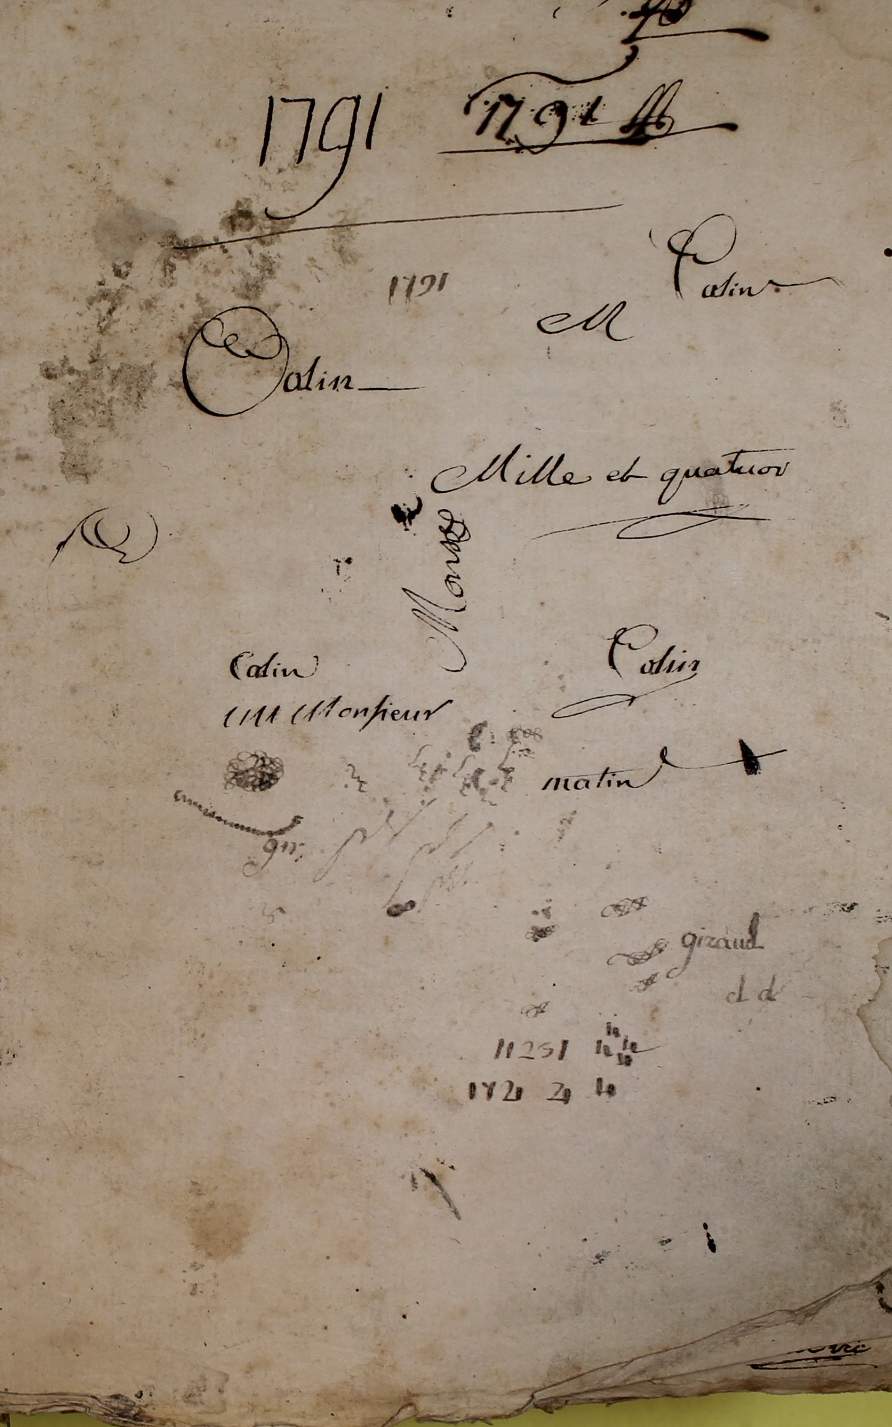 1791 1791
1791
Colin
M
Colin
Mille et quatuor
Mons
Colin
Colin
M Monsieur
matin
giraud
d d
11251